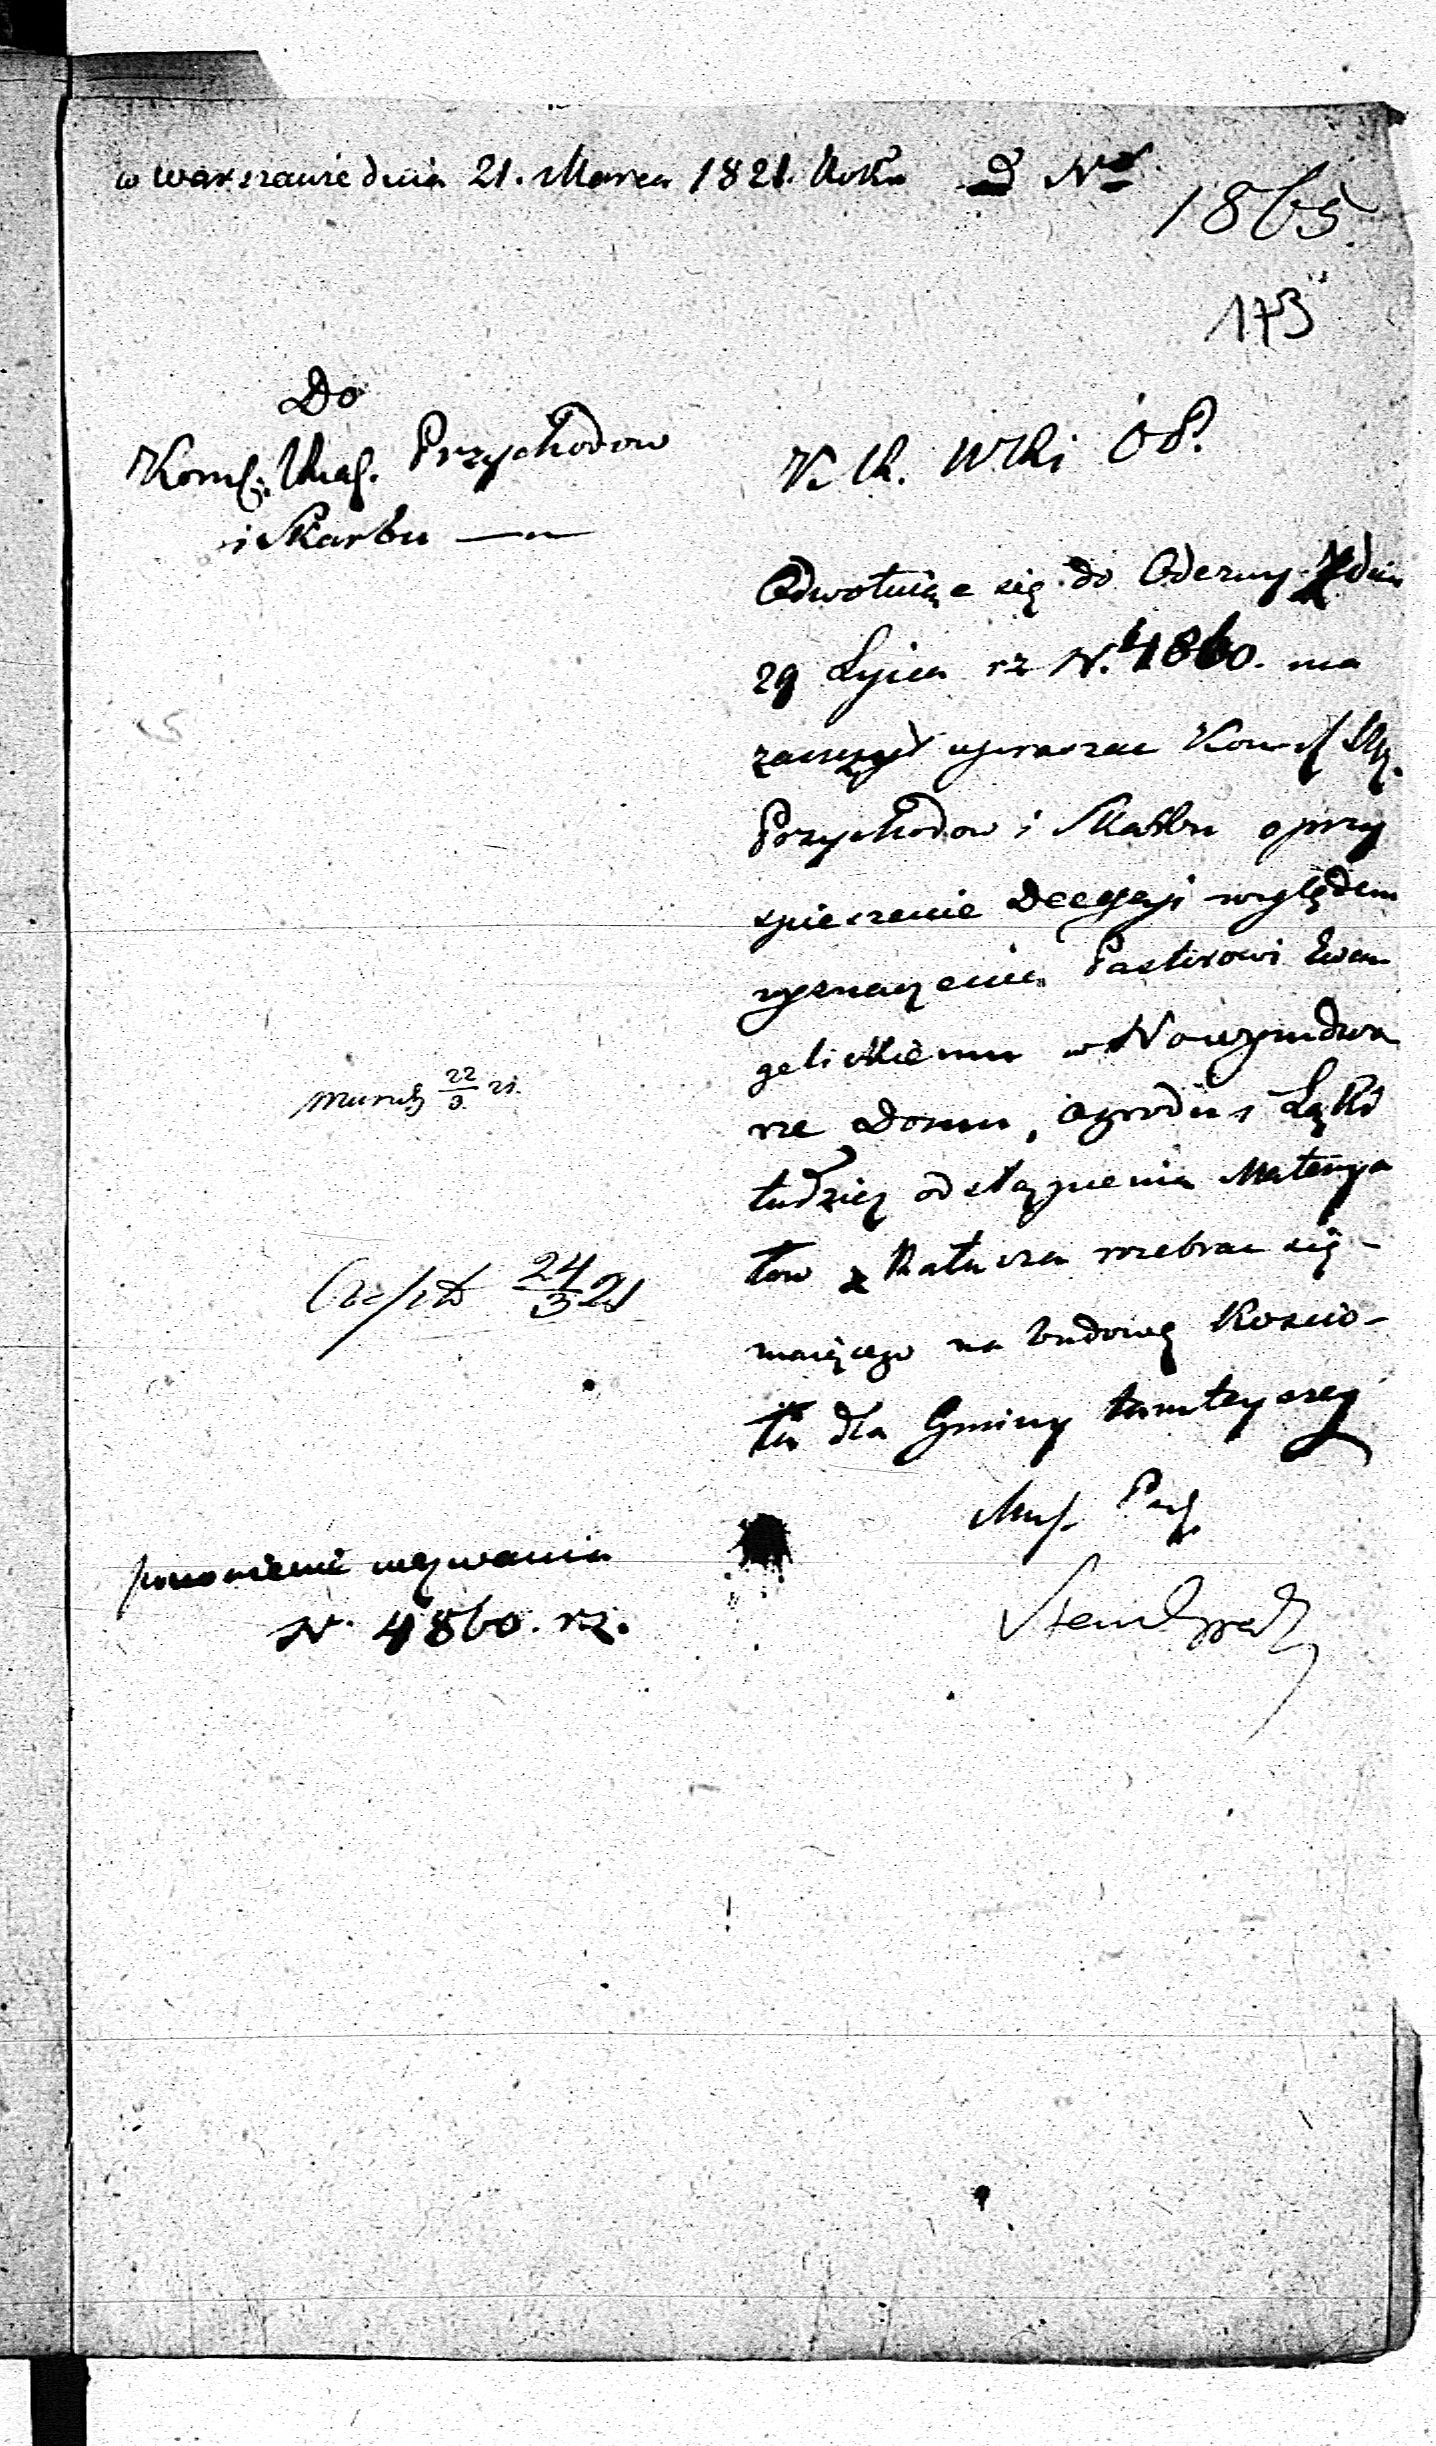 w Warszawie dnia 21. Marca 1821. Roku D Nr
1865.
173
Do
Komss. Przychodow
i Skarbu —
K. R. W R i O P.
Odwołuiąc się do Odezwy z dnia
29 Lipca rz N. 4860. ma
zaszczyt upraszac Komss
Przychodow i Skarbu o przy
spieszenie Decyzyi względem
wyznaczenia Pasterowi Ewan
gelickiemu w Nowymdwo
rze Domu, Ogrodu i Łąki
tudzież odstąpienia Materya
łow z Ratusza rozebrac się -
maiącego na budowę Koscio-
ła dla Gminy tamteyszey
22/3 21.
24/3 21
ponowienie wezwania
N. 4860. rz.